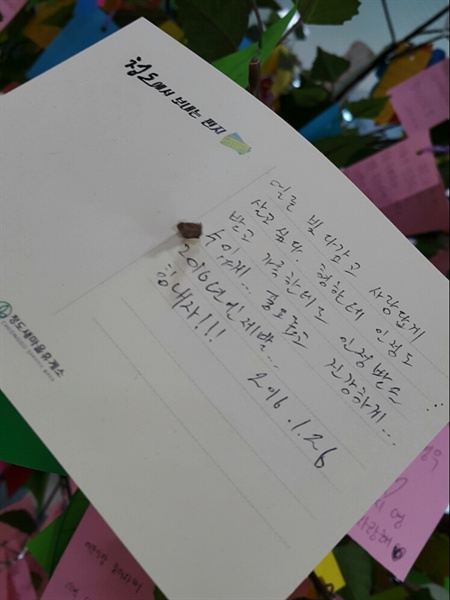 청도에서 보내는 편지
얼른 빚 다갚고 사람답게
살고 싶다. 형한테 인정도
받고 가족한테도 인정받는
수있게... 건강하게...
2016년엔 제발...
힘내자!!!
2016.1.26
청도새마을휴게소